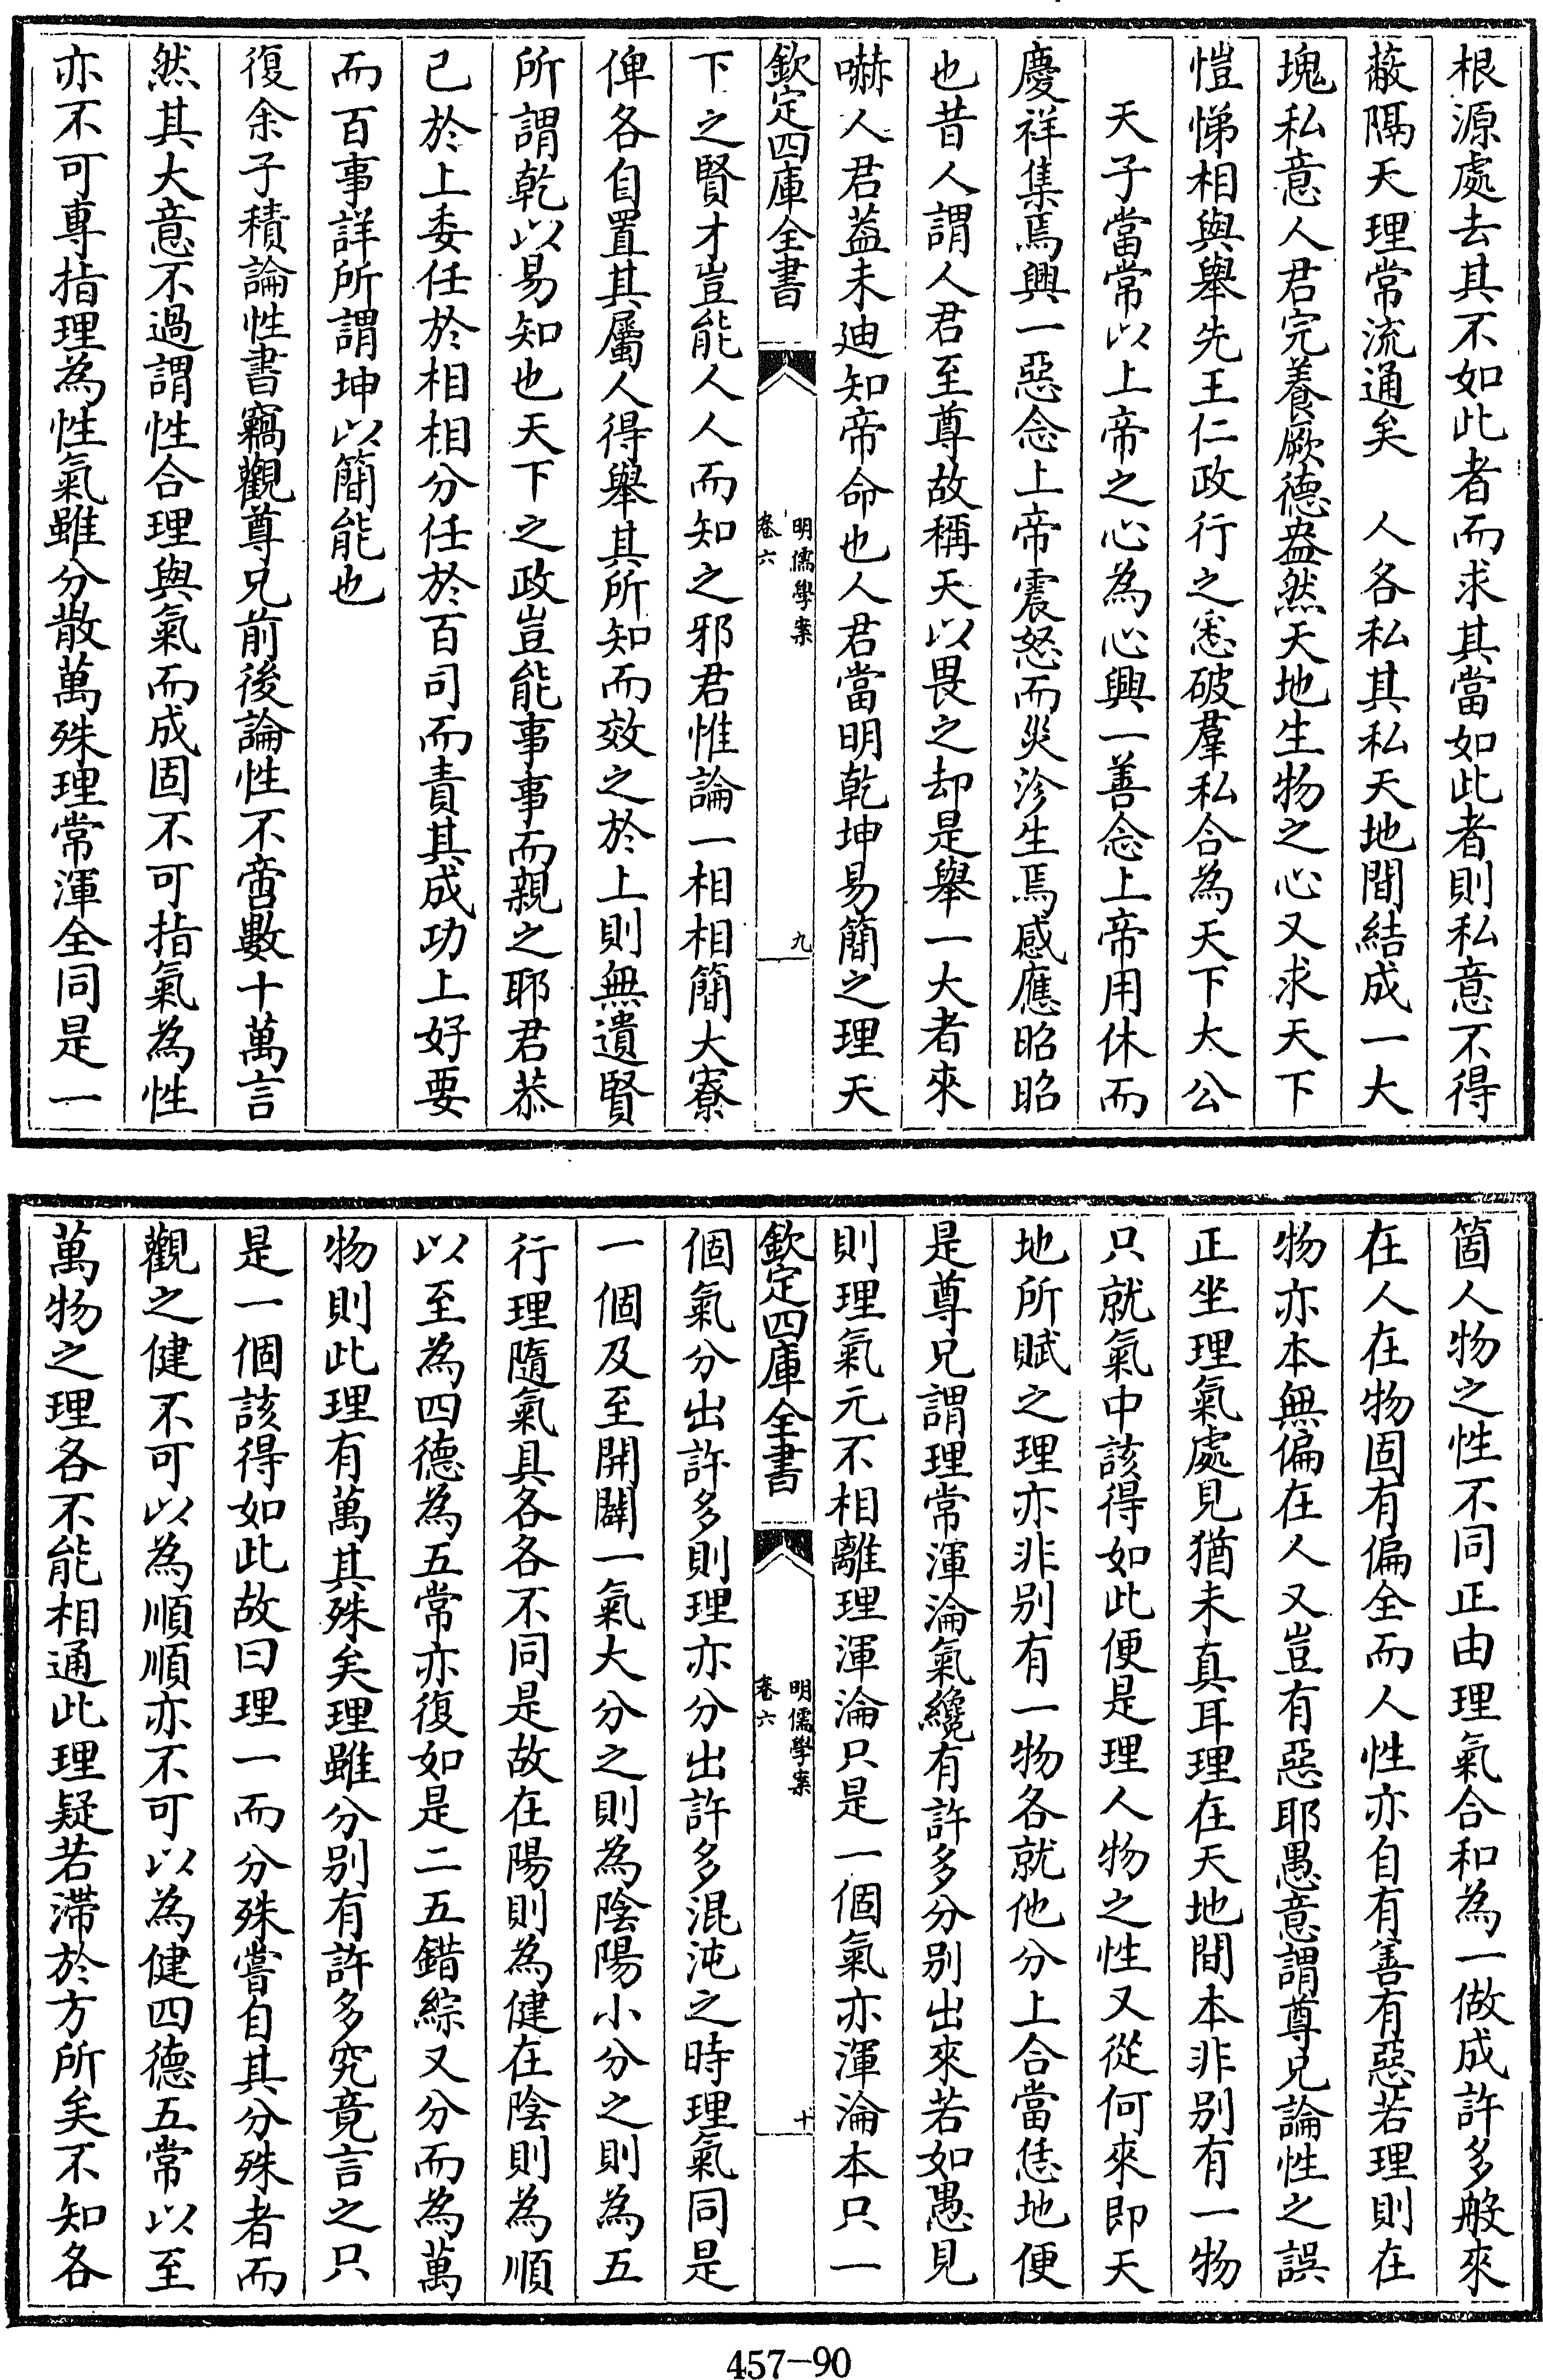 根源處去其不如此者而求其當如此者則私意不得
蔽隔天理常流通矣　人各私其私天地間結成一大
塊私意人君完養厥德盎然天地生物之心又求天下
愷悌相與舉先王仁政行之悉破羣私合為天下大公
天子當常以上帝之心為心興一善念上帝用休而
慶祥集焉興一惡念上帝震怒而災沴生焉感應昭昭
也昔人謂人君至尊故稱天以畏之却是舉一大者來
嚇人君葢未廸知帝命也人君當明乾坤易簡之理天
欽定四庫全書
明儒學案
卷六
九
下之賢才豈能人人而知之邪君惟論一相相簡大寮
俾各自置其屬人得舉其所知而效之於上則無遺賢
所謂乾以易知也天下之政豈能事事而親之耶君恭
已於上委任於相相分任於百司而責其成功上好要
而百事詳所謂坤以簡能也
復余子積論性書竊觀尊兄前後論性不啻數十萬言
然其大意不過謂性合理與氣而成固不可指氣為性
亦不可專指理為性氣雖分散萬殊理常渾全同是一
箇人物之性不同正由理氣合和為一做成許多般來
在人在物固有偏全而人性亦自有善有惡若理則在
物亦本無偏在人又豈有惡耶愚意謂尊兄論性之誤
正坐理氣處見猶未真耳理在天地間本非別有一物
只就氣中該得如此便是理人物之性又從何來即天
地所賦之理亦非别有一物各就他分上合當恁地便
是尊兄謂理常渾淪氣纔有許多分别出來若如愚見
則理氣元不相離理渾淪只是一個氣亦渾淪本只一
欽定四庫全書
明儒學案
卷六
十
個氣分出許多則理亦分出許多混沌之時理氣同是
一個及至開闢一氣大分之則為陰陽小分之則為五
行理隨氣具各各不同是故在陽則為健在陰則為順
以至為四德為五常亦復如是二五錯綜又分而為萬
物則此理有萬其殊矣理雖分别有許多究竟言之只
是一個該得如此故曰理一而分殊嘗自其分殊者而
觀之健不可以為順順亦不可以為健四德五常以至
萬物之理各不能相通此理疑若滯於方所矣不知各
457-90